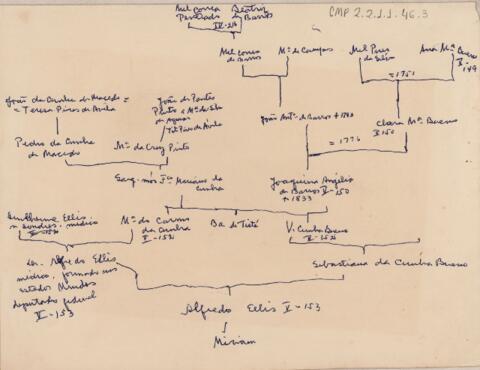 CMP 2.2.1.1.46.3
Mel Correa Beatriz
Penteado de Barros
IV-216
Mel Correa
de Barros
Mª de Campos
Mel Pires
da Silva
Ana Mª Bueno
V-149
= 1751
João da Cunha de Macedo =
= Teresa Pires de Avila
João de Pontes
Pinto e Mª
Pires de Avila
João Antº de Barros
Clara Mª Bueno
V-150
= 1776
Pedro da Cunha
de Macedo
Mª da Cruz Pinto
Sarg. mór Jº Mariano da
Cunha
Joaquina Angelica
de Barros V-150
+ 1833
Guilherme Ellis
n Londres. médico
Mª do Carmo
da Cunha
V-152
Ba de Tietê
V. Cunha Bueno
Dr. Alfredo Ellis
médico, formado nos
Estados Unidos
deputado federal
V-153
Sebastiana da Cunha Bueno
Alfredo Ellis V-153
Miriam